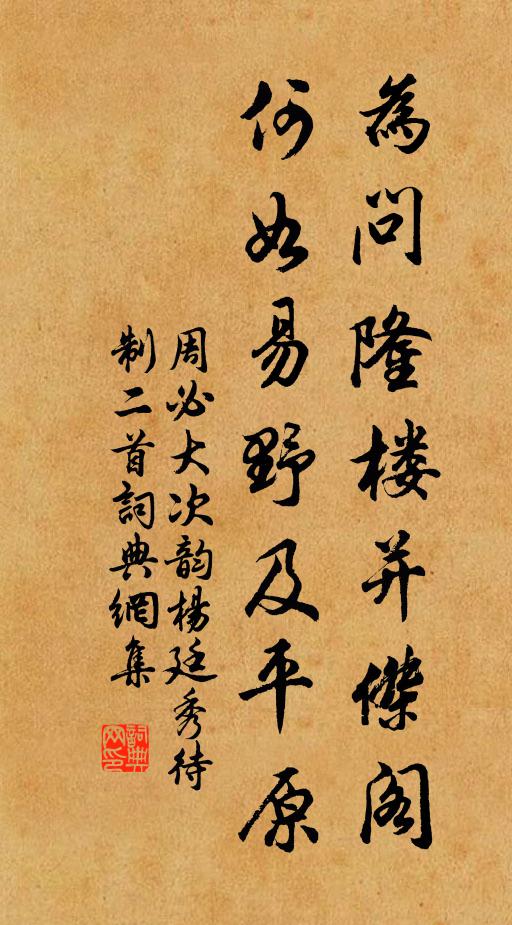 為问隆楼并傑阁
何如易野及平原
周必大次韵楊廷秀待
制二首詞典網集
詞典网印